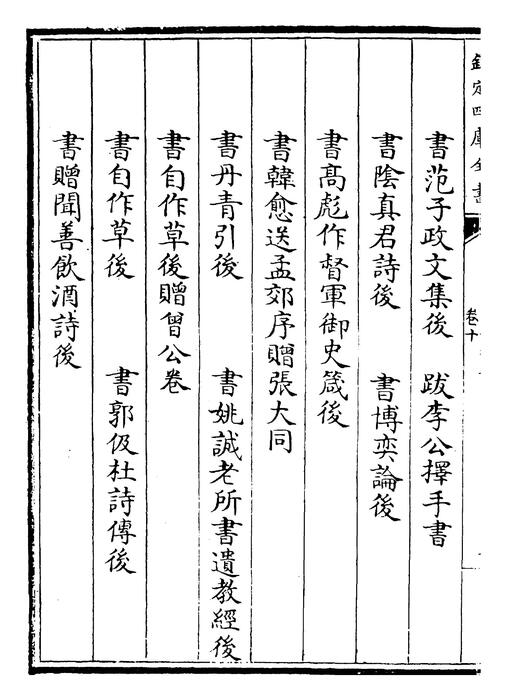 欽定四庫全書
卷十
書范子政文集後 跋李公擇手書
書陰真君詩後 書博奕論後
書髙彪作督軍御史箴後
書韓愈送孟郊序贈張大同
書丹青引後 書姚誠老所書遺教經後
書自作草後贈曾公卷
書自作草後 書郭伋杜詩傳後
書贈聞善飲酒詩後